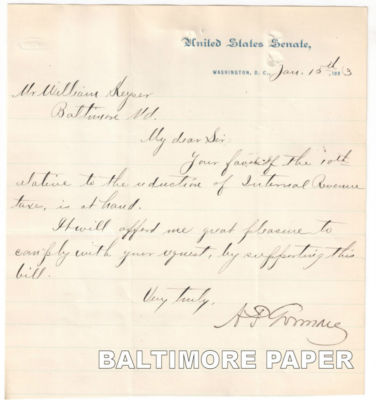 United States Senate,
WASHINGTON, D. C., Jan. 15th 1883
Mr William Keyser
Baltimore Md.
My dear Sir:
Your favor of the 10th
relative to the reduction of Internal Revenue
taxes, is at hand.
It will afford me great pleasure to
comply with your request, by supporting this
bill.
Very truly,
A P Gorman
BALTIMORE PAPER